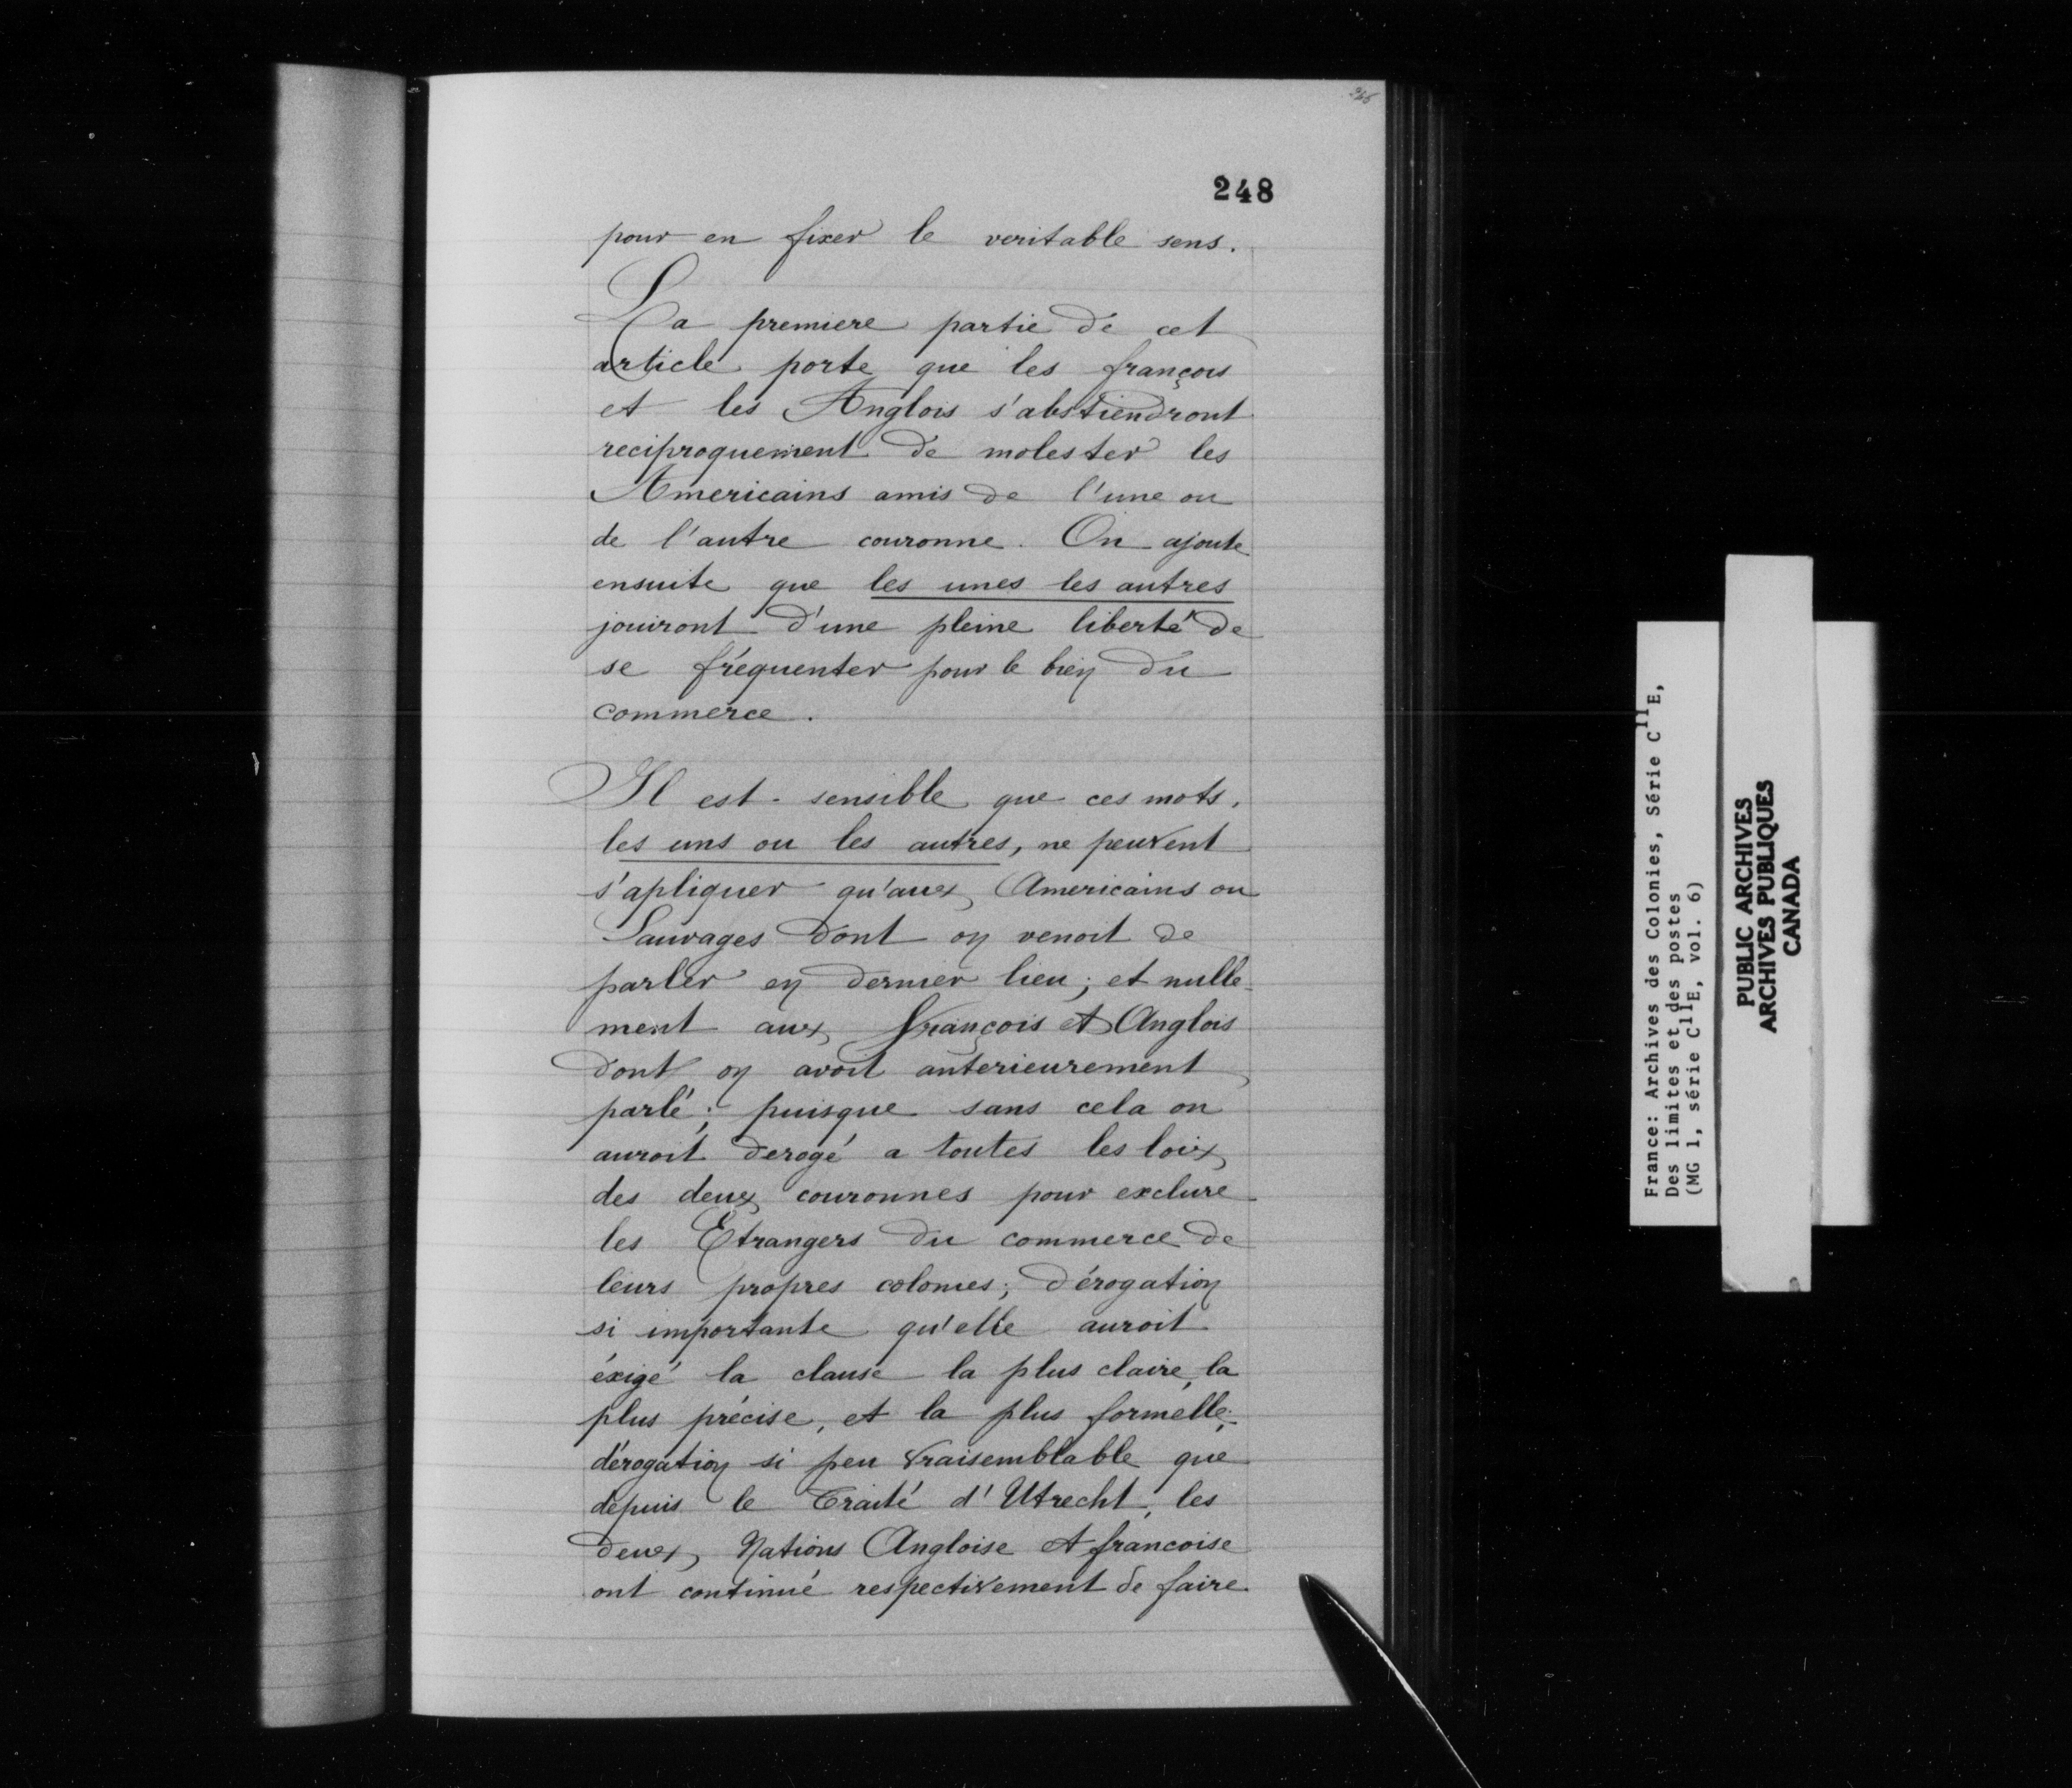 248
pour en fixer le veritable sens.
La premiere partie de cet
article porte que les françois
et les Anglois s'abstiendront
reciproquement de molester les
Americains amis de l'une ou
de l'autre couronne. On ajoute
ensuite que les unes les autres
jouiront d'une pleine liberté de
se fréquenter pour le bien du
commerce.
Il est sensible que ces mots,
les uns ou les autres, ne peuvent
s'apliquer qu'aux Americains ou
Sauvages dont on venoit de
parler en dernier lieu; et nulle-
ment aux François et Anglois
dont on avoit anterieurement
parlé; puisque sans cela on
auroit derogé a toutes les loix
des deux couronnes pour exclure
les Etrangers du commerce de
leurs propres colonies; dérogation
si importante qu'elle auroit
éxigé la clause la plus claire, la
plus précise, et la plus formelle;
dérogation si peu vraisemblable que
depuis le Traité d'Utrecht, les
deux Nations Angloise et francoise
ont continué respectivement de faire
France: Archives des Colonies, Série C11E,
Des limites et des postes
(MG 1, série C11E, vol. 6)
PUBLIC ARCHIVES
ARCHIVES PUBLIQUES
CANADA